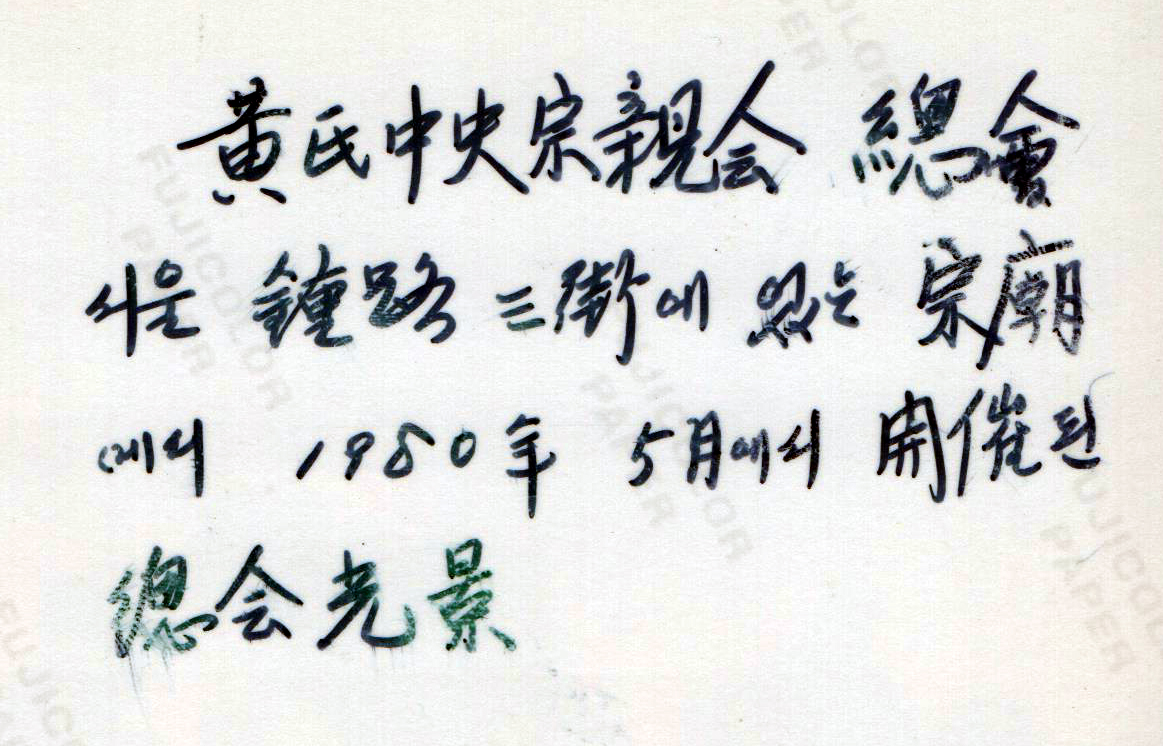 黄氏中央宗親会 總會
서울 鍾路 三街에 있는 宗廟
에서 1980年 5月에서 開催된
總会光景
FUJICOLOR
PAPER